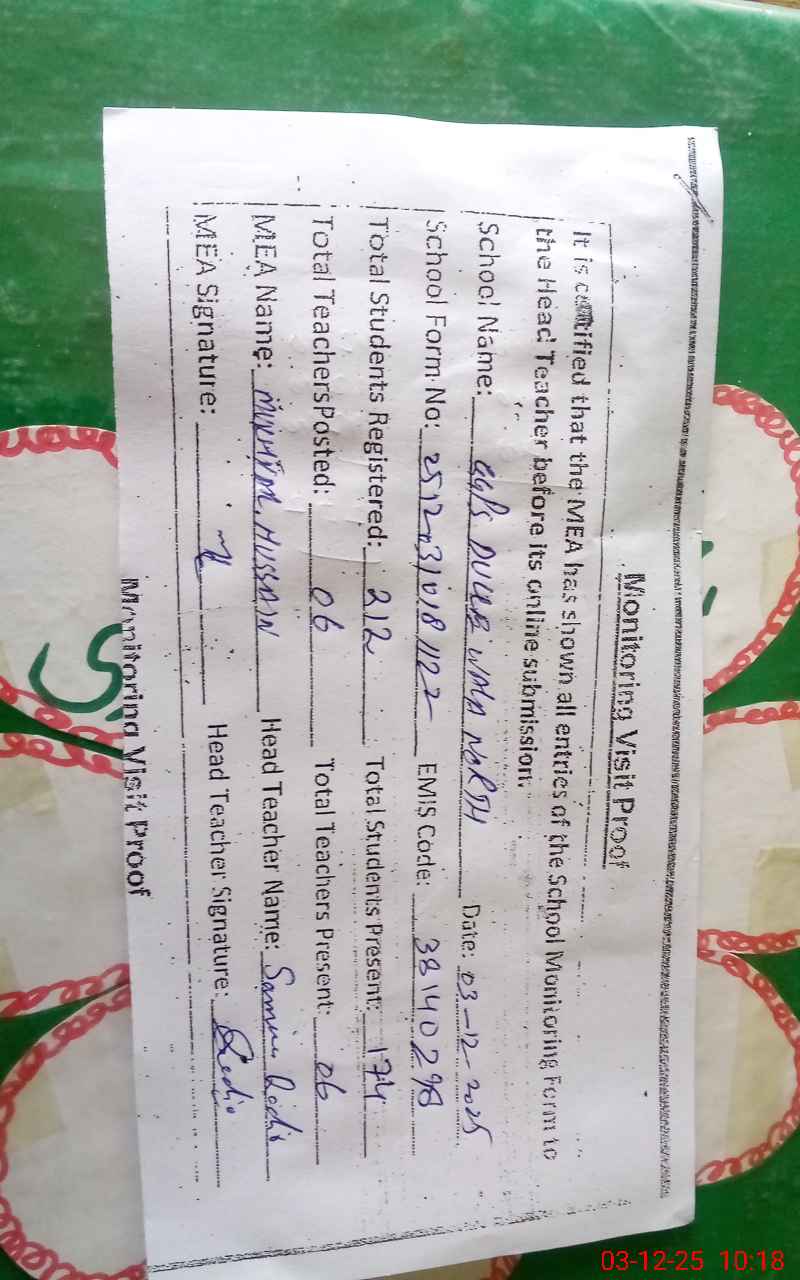 Monitoring Visit Proof
It is certified that the MEA has shown all entries of the School Monitoring Form to
the Head Teacher before its online submission.
School Name: GGPS DULLE WALA NORTH Date: 03-12-2025
School Form No: EMIS Code: 38140298
Total Students Registered: 212 Total Students Present: 174
Total TeachersPosted: 06 Total Teachers Present: 06
MEA Name: HUSSAIN Head Teacher Name:
MEA Signature: Head Teacher Signature:
Monitoring Visit Proof
03-12-25 10:18